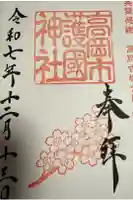 奉拝
高岡市
護國
神社
令和七年十二月十三日